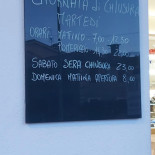 GIORNATA di CHIUSURA
MARTEDI
ORARI MATTINO - 7.00 - 12.30
POMERIGGIO
SABATO SERA CHIUSURA 23.00
DOMENICA MATTINA APERTURA 8.00